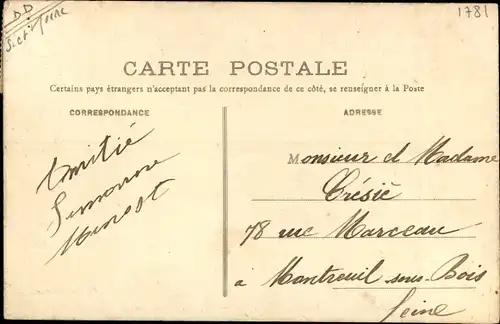 DD
1781
CARTE POSTALE
Certains pays étrangers n'acceptant pas la correspondance de ce côté, se renseigner à la Poste
CORRESPONDANCE
ADRESSE
Amitié
Simonne
Monsieur et Madame
Crésié
78 rue Marceau
à Montreuil sous Bois
Seine